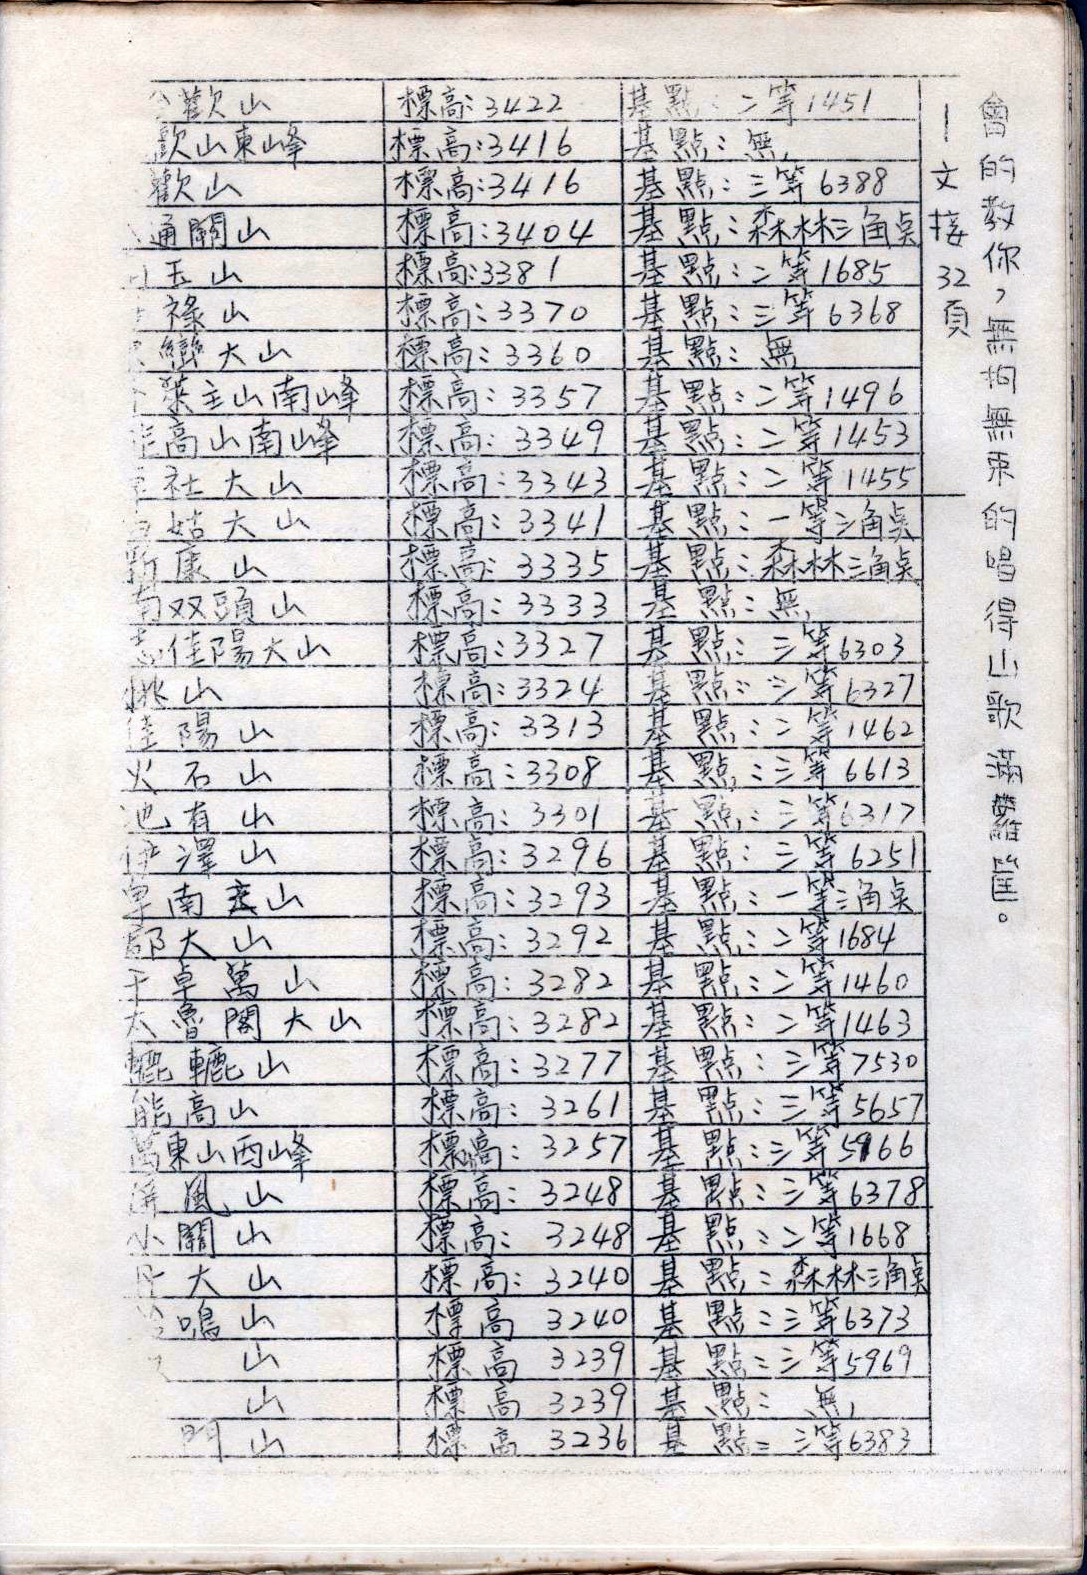 會的教你,無拘無束的唱得山歌滿籮筐。
文接32頁
歡山 標高:3422 基點:二等1451
歡山東峰 標高:3416 基點:無
歡山 標高:3416 基點:三等6388
通關山 標高:3404 基點:森林三角點
玉山 標高:3381 基點:二等1685
祿山 標高:3370 基點:三等6368
巒大山 標高:3360 基點:無
萊主山南峰 標高:3357 基點:二等1496
能高山南峰 標高:3349 基點:二等1453
社大山 標高:3343 基點:二等1455
姑大山 標高:3341 基點:一等三角點
新康山 標高:3335 基點:森林三角點
南双頭山 標高:3333 基點:無
志佳陽大山 標高:3327 基點:三等6303
桃山 標高:3324 基點:三等6327
佳陽山 標高:3313 基點:二等1462
火石山 標高:3308 基點:三等6613
池有山 標高:3301 基點:三等6317
伊澤山 標高:3296 基點:三等6251
卑南主山 標高:3293 基點:一等三角點
郡大山 標高:3292 基點:二等1684
干卓萬山 標高:3282 基點:二等1460
太魯閣大山 標高:3282 基點:二等1463
轆轆山 標高:3277 基點:三等7530
能高山 標高:3261 基點:三等5657
萬東山西峰 標高:3257 基點:三等5966
屏風山 標高:3248 基點:三等6378
小關山 標高:3248 基點:二等1668
丹大山 標高:3240 基點:森林三角點
鳴山 標高 3240 基點:三等6373
山 標高 3239 基點:三等5969
山 標高 3239 基點:無
門山 標高 3236 基點:三等6383